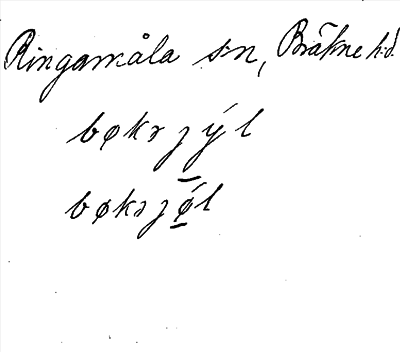 Ringamåla sn, Bräkne hd.
bøkrȷýl
bøkrȷǿl